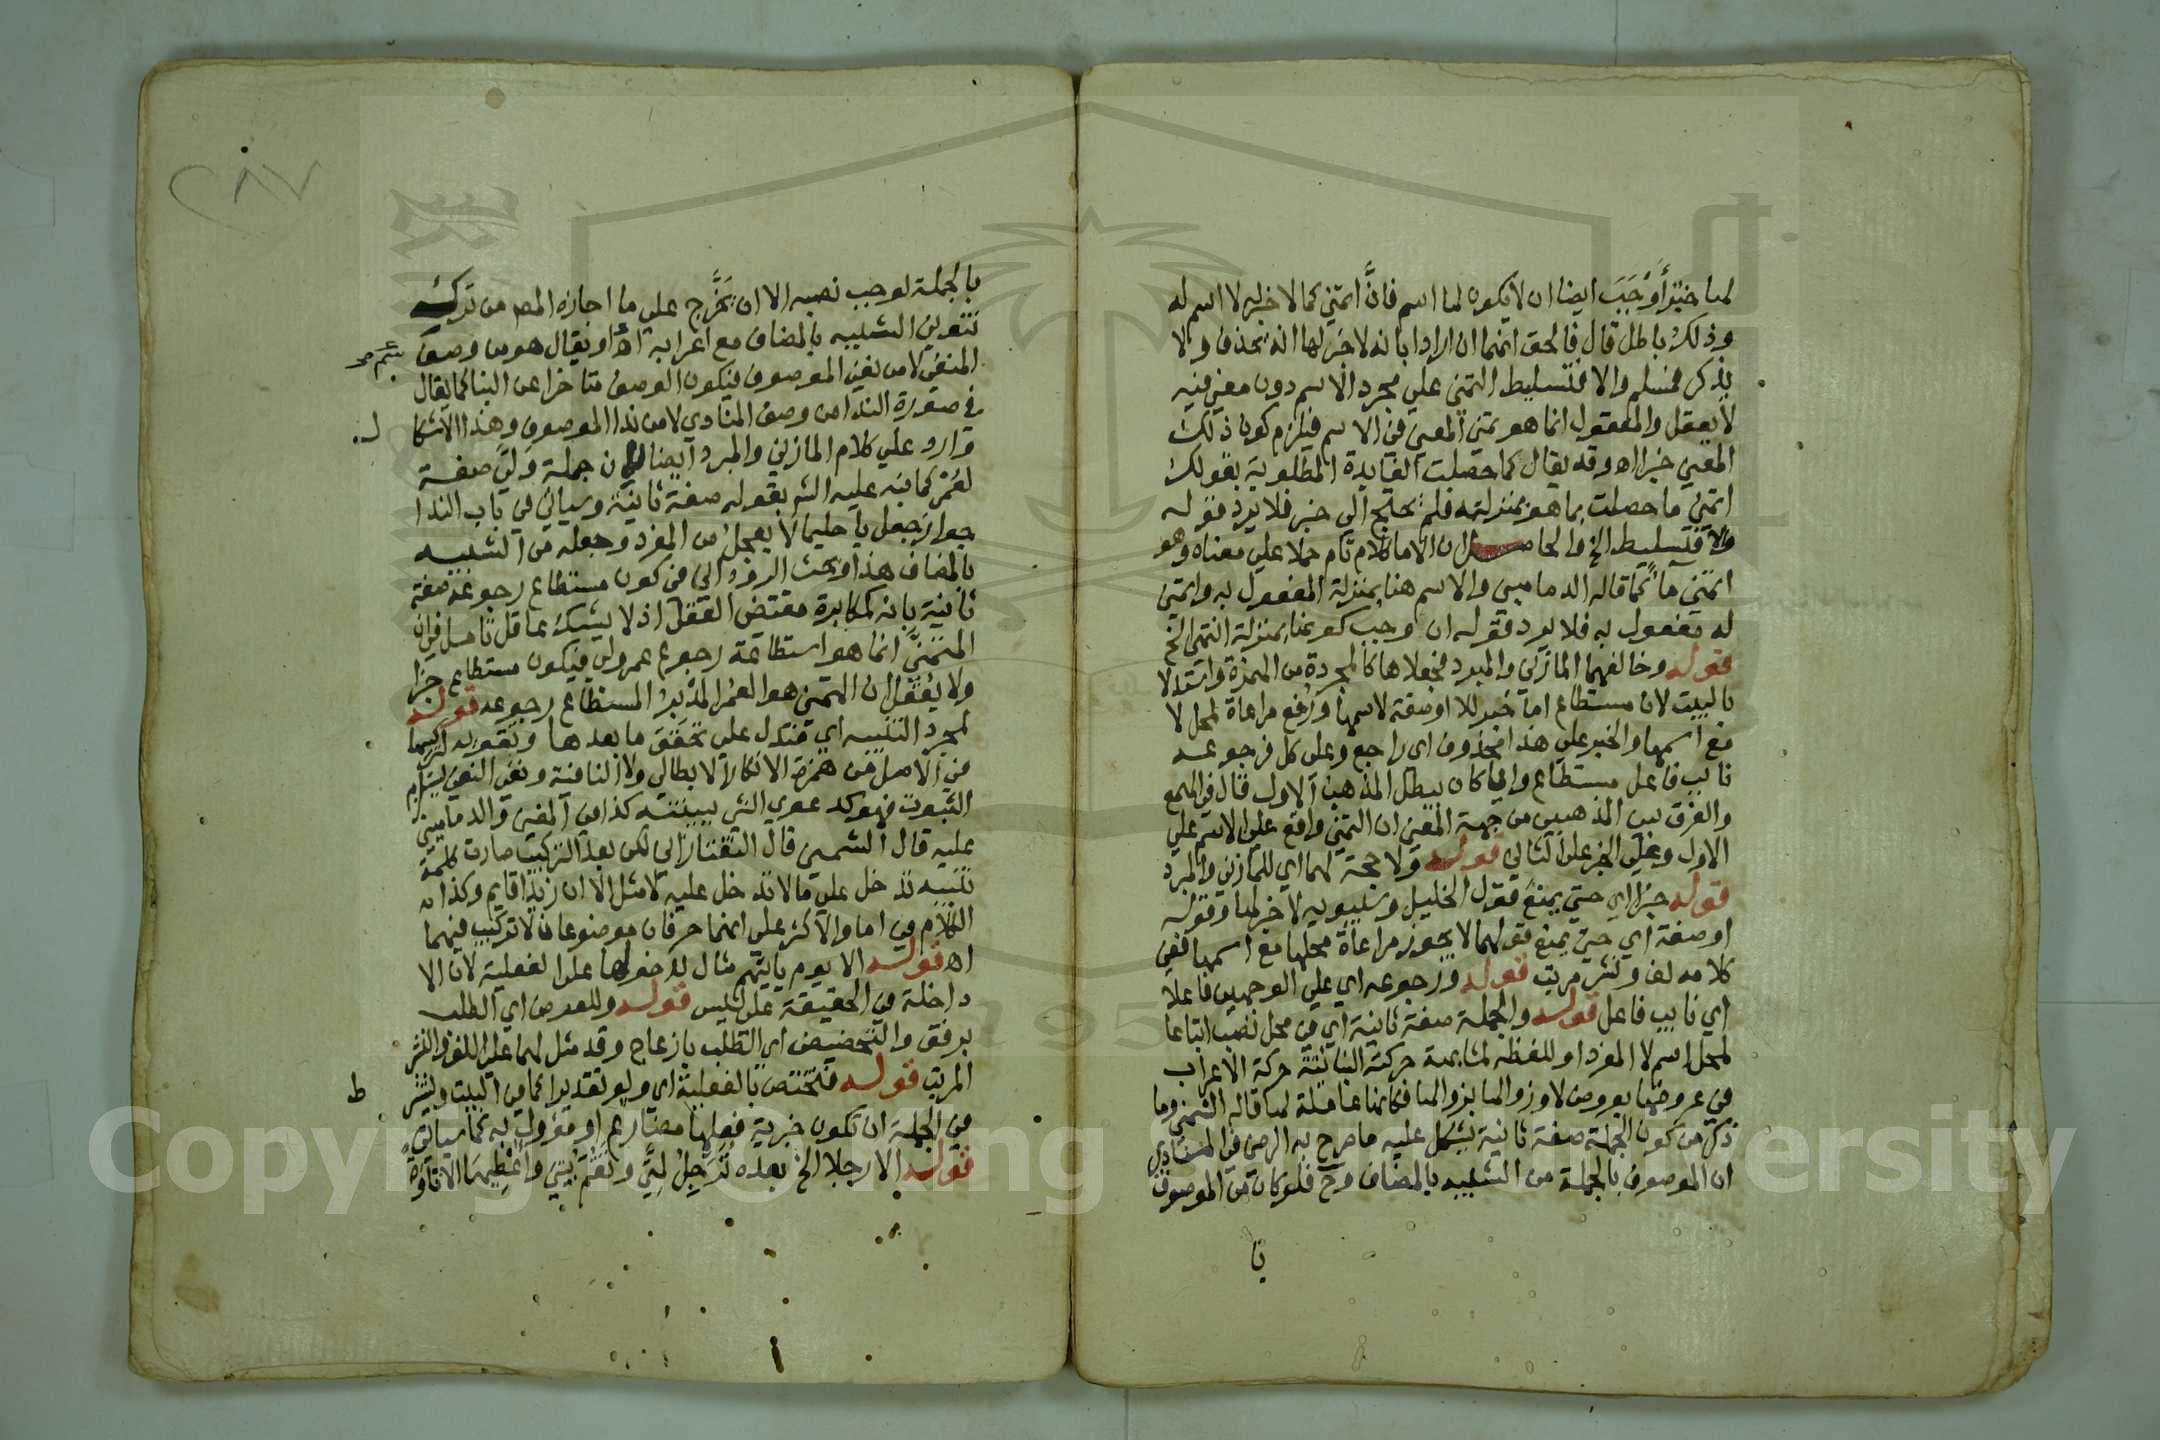 لها خبر أَوْجَبَ ايضا ان لا يكون لها اسم فانَّ اتمني كما لا خبر له لا اسم له
وذلك باطل قال فالحق انهما ان ارادا بانه لا خبر لها انه يحذف ولا
يذكر فمسلم والا فتسليط التمني علي مجرد الاسم دون معني فيه
لا يعقل والمعقول انما هو تمني المعني في الاسم فيلزم كون ذلك
المعني خبرا اه وقد يقال كما حصلت الفايدة المطلوبة بقولك
اتمني ما حصلت بما هو بمنزلته فلم يحتج الي خبر فلا يرد قوله
والا فتسليط الخ والحاصل ان الا ما كلام تام حملا علي معناه وهو
اتمني ماء كما قاله الدماميني والاسم هنا بمنزلة المفعول به واتمني
له مفعول به فلا يرد قوله ان اوجب كونها بمنزلة اتمني الخ
قوله وخالفهما المازني والمبرد فجعلاها كالمجردة من الهمزة واستدلا
بالبيت لان مستطاع اما خبر للا او صفة لاسمها ورفع مراعاة لمحل لا
مع اسمها والخبر علي هذا محذوف اي راجع وعلي كل فرجوعه
نايب فاعل مستطاع وايا كان يبطل المذهب الاول قال في الهمع
والفرق بين المذهبين من جهة المعني ان التمني واقع علي الاسم علي
الاول وعلي الخبر علي الثاني قوله ولا حجة لهما اي للمازني والمبرد
قوله خبرا اي حتي يمنع قول الخليل وسيبويه لا خبر لها وقوله
او صفة اي حتي يمنع قولهما لا يجوز مراعاة محلها مع اسمها ففي
كلامه لف ونشر مرتب قوله ورجوعه اي علي الوجهين فاعلا
اي نايب فاعل قوله والجملة صفة ثانية اي في محل نصب اتباعا
لمحل اسم لا المفرد او للفظه لمشابهة حركته البنائية حركة الاعراب
في عروضها بعروض لا وزوالها بزوالها فكانها عاملة لها قاله الشمني وما
ذكر من كون الجملة صفة ثانية يشكل عليه ما صرح به الرضي في المنادي
ان الموصوف بالجملة من الشبيه بالمضاف وح فلو كان من الموصوف
با
بالجملة لوجب نصبه الا ان يُخَرَّج علي ما اجازه المص من ترك
تنوين الشبيه بالمضاف مع اعرابه اه او يقال هو من وصف
المنفي لا من نفي الموصوف فيكون الوصف متاخرا عن البنا كما يقال
في صورة الندا من وصف المنادي لا من ندا الموصوف وهذا الاشكا
ل
وارد علي كلام المازني والمبرد ايضا لان جملة ولي صفة
لعمر كما نبه عليه الش بقوله صفة ثانية وسياتي في باب الندا
جواز جعل يا حليما لا يعجل من المفرد وجعله من الشبيه
بالمضاف هذا وبحث الروداني في كون مستطاع رجوعه صفة
ثانية بانه مكابرة مقتضي العقل اذ لا يشك عاقل تامل في ان
المتمني انما هو استطاعة رجوع عمر ولي فيكون مستطاع خبرا
ولا يعقل ان المتمني هو العمر المدبر المستطاع رجوعه قوله
لمجرد التنبيه اي فتدل علي تحقق ما بعدها وتقويه لتركيبها
في الاصل من همزة الانكار الابطالي ولا النافية ونفي النفي يستلزم
الثبوت فهو كدعوي الشي ببينته كذا في المغني والدماميني
عليه قال الشمني قال التفتازاني لكن بعد التركيب صارت كلمة
تنبيه تدخل علي ما لا تدخل عليه لا مثل الا ان زيدا قايم وكذا
الكلام في اما والاكثر علي انهما حرفان موضوعان لا تركيب فيهما
اه قوله الا يوم ياتيهم مثال لدخولها علي الفعلية لان الا
داخلة في الحقيقة علي ليس قوله وللعرض اي الطلب
برفق والتحضيض اي الطلب بازعاج وقد مثل لهما علي اللف والنشر
المرتب قوله فتختص بالفعلية اي ولو تقديرا كما في البيت ويشتر
ط
في الجملة ان تكون خبرية فعلها مضارع او مؤول به كما سياتي
قوله الا رجلا الخ بعده تُرَجِّلُ لِمَّتي وتَقُمّ بَيْتي وأُعْطِيها الاتاوة